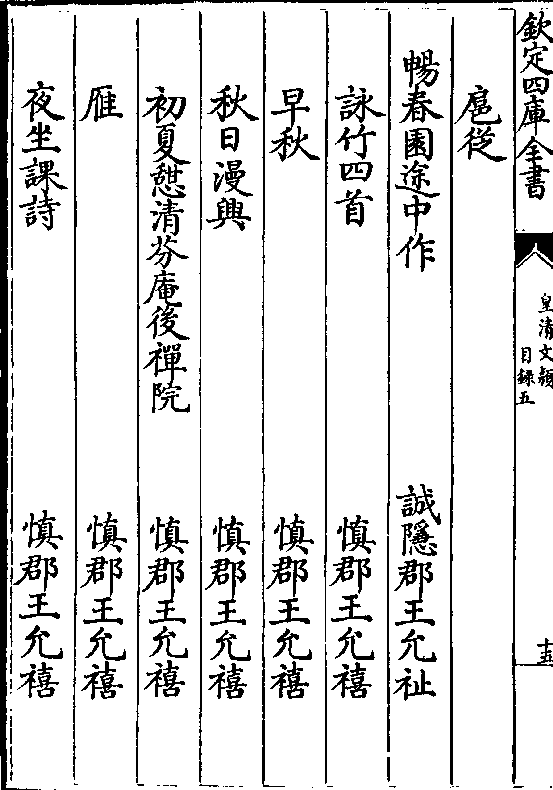 欽定四庫全書
皇清文穎
目録五
十五
扈從
暢春園途中作 誠隱郡王允祉
詠竹四首 慎郡王允禧
早秋 慎郡王允禧
秋日漫興 慎郡王允禧
初夏憇清芬庵後禪院 慎郡王允禧
雁 慎郡王允禧
夜坐課詩 慎郡王允禧